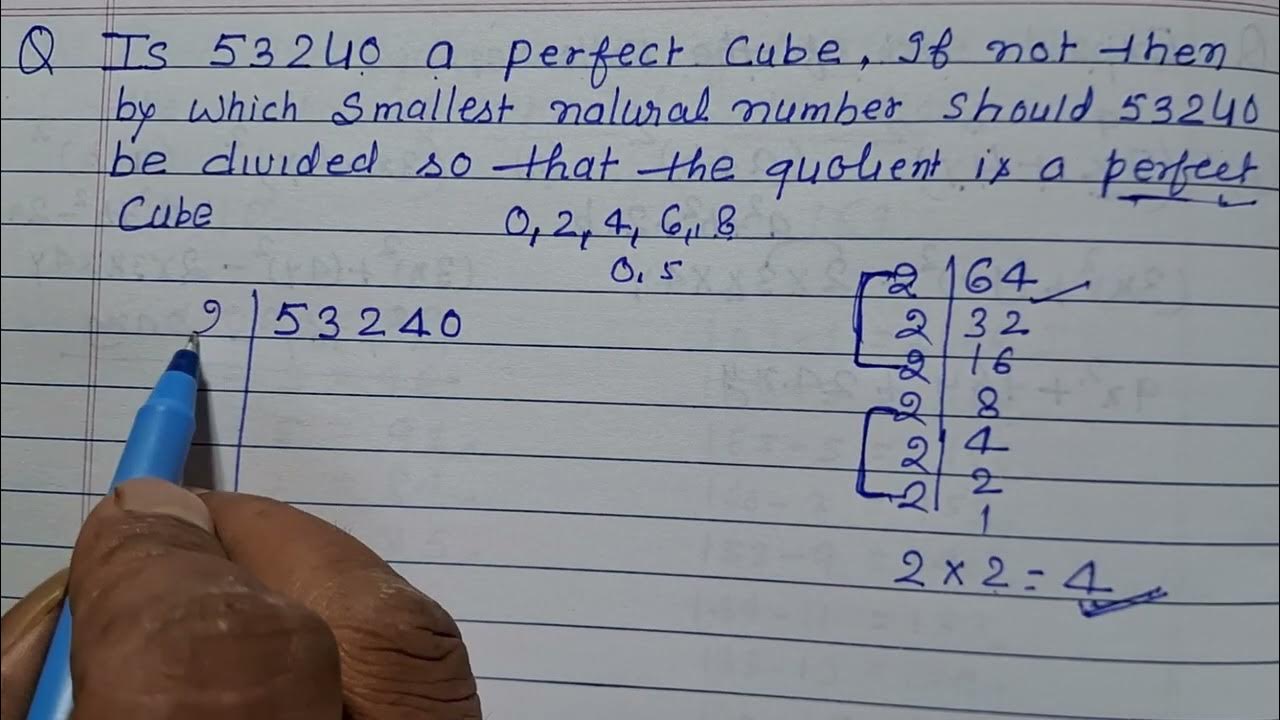 Q Is 53240 a perfect cube, If not then
by which smallest natural number should 53240
be divided so that the quotient is a perfect
Cube
0, 2, 4, 6, 8
0, 5
2 | 64
2 | 32
2 | 16
2 | 8
2 | 4
2 | 2
1
2 × 2 = 4
2 | 53240